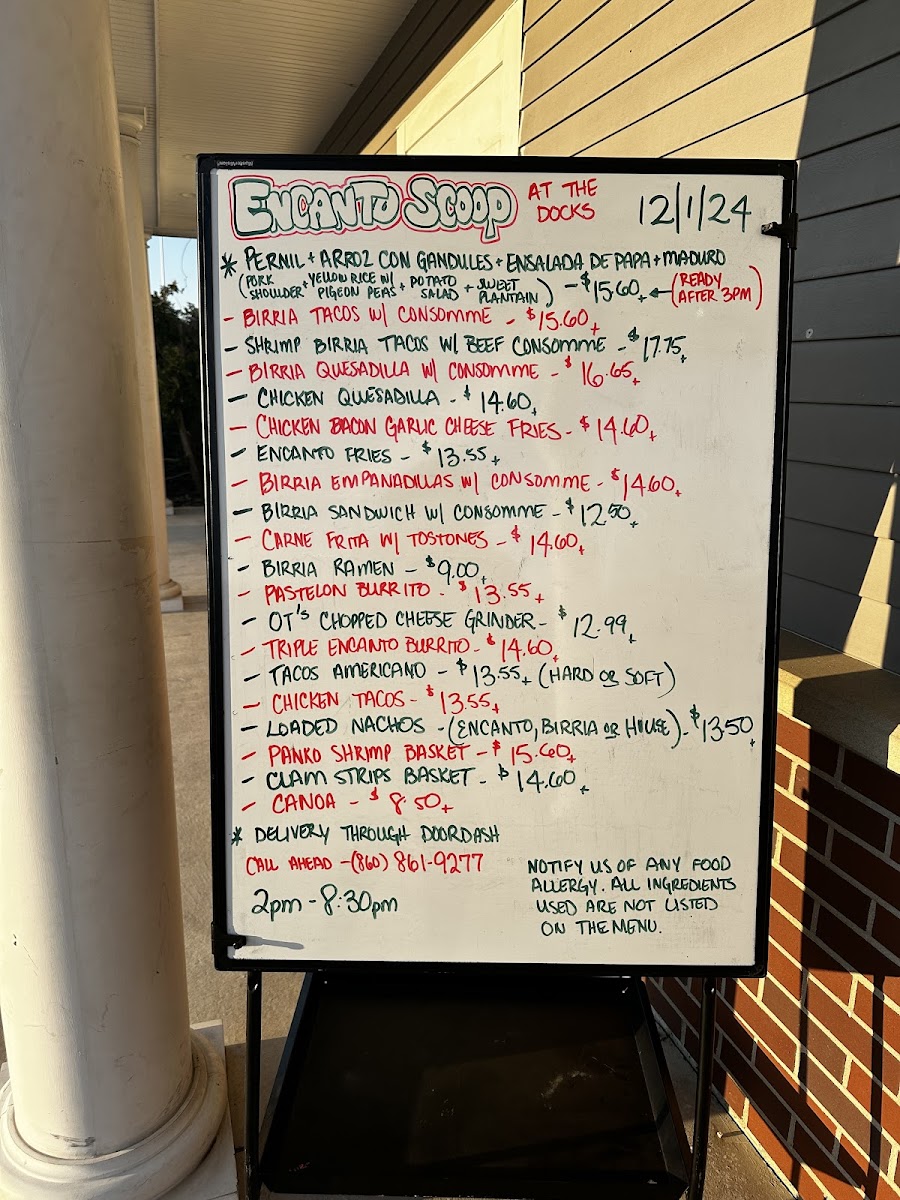 ENCANTO SCOOP AT THE DOCKS 12/1/24
* PERNIL + ARROZ CON GANDULES + ENSALADA DE PAPA + MADURO
(PORK SHOULDER + YELLOW RICE W/ PIGEON PEAS + POTATO SALAD + SWEET PLANTAIN) - $15.60+ ← (READY AFTER 3PM)
- BIRRIA TACOS W/ CONSOMME - $15.60+
- SHRIMP BIRRIA TACOS W/ BEEF CONSOMME - $17.75+
- BIRRIA QUESADILLA W/ CONSOMME - $16.65+
- CHICKEN QUESADILLA - $14.60+
- CHICKEN BACON GARLIC CHEESE FRIES - $14.60+
- ENCANTO FRIES - $13.55+
- BIRRIA EMPANADILLAS W/ CONSOMME - $14.60+
- BIRRIA SANDWICH W/ CONSOMME - $12.50+
- CARNE FRITA W/ TOSTONES - $14.60+
- BIRRIA RAMEN - $9.00+
- PASTELON BURRITO - $13.55+
- OT'S CHOPPED CHEESE GRINDER - $12.99+
- TRIPLE ENCANTO BURRITO - $14.60+
- TACOS AMERICANO - $13.55+ (HARD OR SOFT)
- CHICKEN TACOS - $13.55+
- LOADED NACHOS - (ENCANTO, BIRRIA OR HOUSE) - $13.50+
- PANKO SHRIMP BASKET - $15.60+
- CLAM STRIPS BASKET - $14.60+
- CANOA - $8.50+
* DELIVERY THROUGH DOORDASH
CALL AHEAD - (860) 861-9277
2pm - 8:30pm
NOTIFY US OF ANY FOOD
ALLERGY. ALL INGREDIENTS
USED ARE NOT LISTED
ON THE MENU.